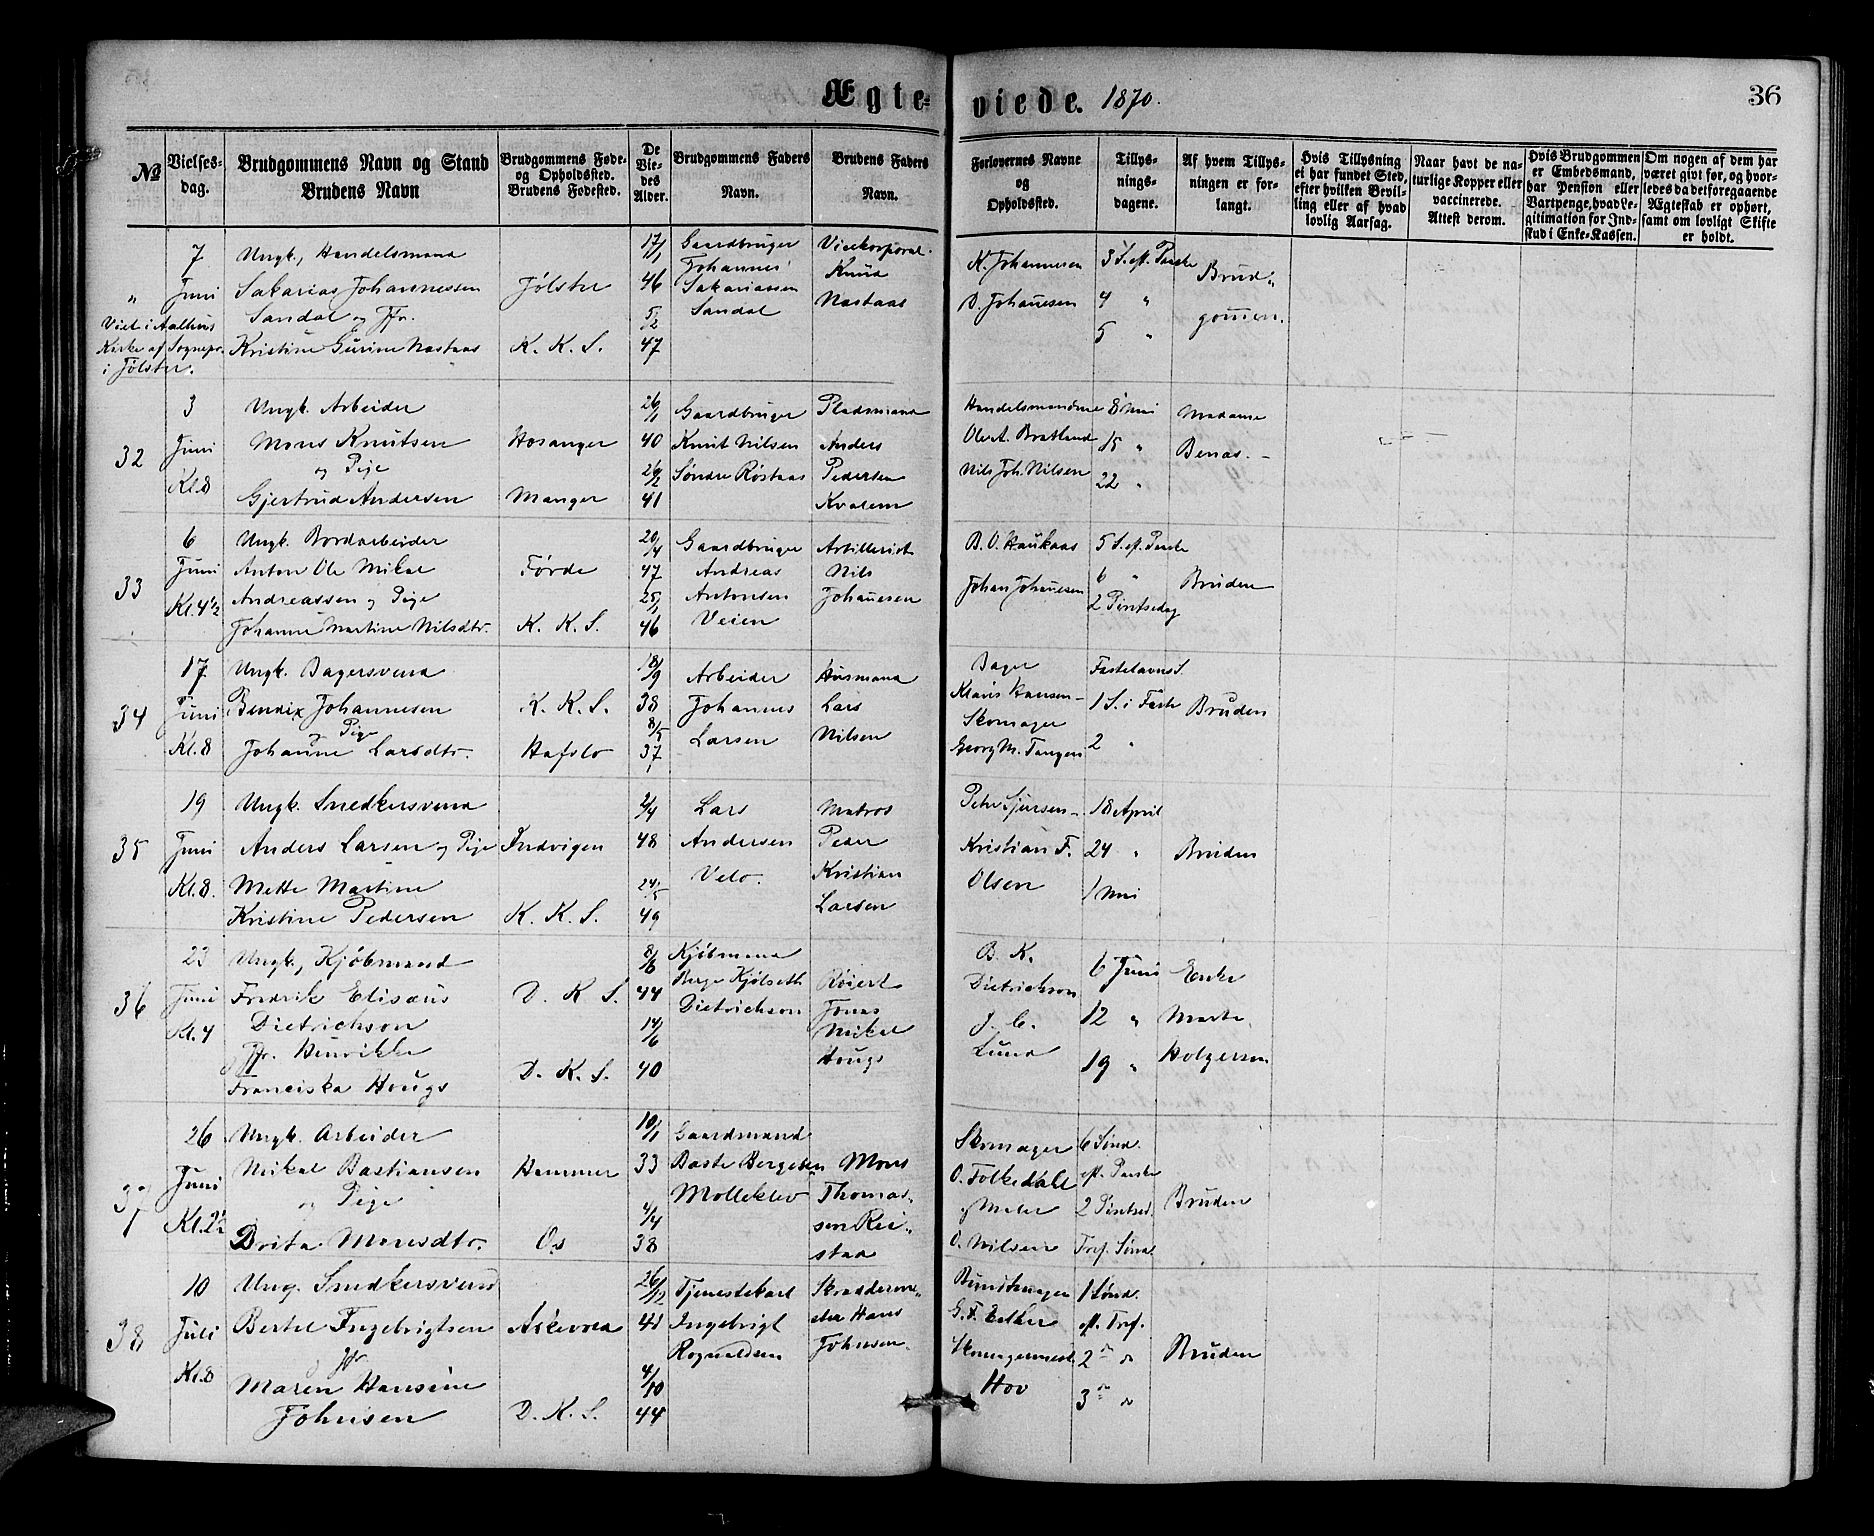 Ægte-viede. 1870.
36
№
Vielses-dag.
Brudgommens Navn og Stand
Brudens Navn
Brudgommens Føde- og Opholdssted.
Brudens Fødested.
De Viedes Alder.
Brudgommens Faders Navn.
Brudens Faders Navn.
Forlovernes Navne og Opholdssted.
Tillysningsdagene.
Af hvem Tillysningen er forlangt.
Hvis Tillysning ei har fundet Sted, efter hvilken Bevilling eller af hvad lovlig Aarsag.
Naar havt de naturlige Kopper eller vaccinerede. Attest derom.
Hvis Brudgommen er Embedsmand, har Pension eller Vartpenge, hvad Legitimation for Indskud i Enke-Kassen.
Om nogen af dem har været gift før, og hvorledes da det foregaaende Ægteskab er ophørt, samt om lovligt Skifte er holdt.
"
7 Juni
Viet i Aalhus Kirke af Sognepr. i Jølster.
Ungk., Handelsmand
Sakarias Johannessen
Sandal og Jfr.
Kristine Gurine Nastaas
Jølster
K. K. S.
17/1 46
5/2 47
Gaardbruger
Johannes
Sakariassen
Sandal
Vicekorporal
Knud
Nastaas
K. Johannesen
D. Johanesen
3 S. ef. Paaske
4 "
5 "
Brud-
gomen.
32
3 Juni Kl. 8
Ungk. Arbeider
Mons Knutsen
og Pige
Gjertrud Andersen
Hosanger
Manger
26/1 40
26/2 41
Gaardbruger
Knut Nilsen
Søndre Røstaas
Pladsmand
Anders
Pedersen
Kvalem
Handelsmændene
Ole A. Bratland
Nils Joh. Nilsen
8 Mai
15 "
22 "
Madame
Benas.
33
6 Juni Kl. 4 1/2
Ungk. Bordarbeider
Anton Ole Mikal
Andreassen og Pige
Johanne Martine Nilsdtr.
Førde
K. K. S.
20/4 47
25/1 46
Gaardbruger
Andreas
Antonsen
Veien
Artillerist
Nils
Johanesen
B. O. Haukaas
Johan Johanesen
5 S. ef. Paaske
6 "
2 Pintsedag
Bruden
34
17 Juni Kl. 8
Ungk. Bagersvend
Bendix Johannesen
og Pige
Johanne Larsdtr.
K. K. S.
Hafslo
18/9 38
8/5 37
Arbeider
Johannes
Larsen
Husmand
Lars
Nilsen
Bager
Klaus Hansen
Skomager
Georg M. Tangen
Fastelavns S.
1 S. i Faste
2 "
Bruden
35
19 Juni Kl. 8.
Ungk. Snedkersvend
Anders Larsen og Pige
Mette Martine
Kristine Pedersen
Indvigen
K. K. S.
2/4 48
24/5 49
Lars
Andersen
Velo.
Matros
Peder
Kristian
Larsen
Peter Sjursen
Kristian F.
Olsen
18 April
24 "
1 Mai
Bruden
36
23 Juni Kl. 4
Ungk., Kjøbmand
Fredrik Elisæus
Dietrichson
og Jfr. Henrikke
Franciska Hougs
D. K. S.
D. K. S.
8/6 44
14/6 40
Kjøbmand
Berge Kjølseth
Dietrichson
Jonas
Mikal
Hougs
B. K.
Dietrichson
J. C.
Lund
6 Juni
12 "
19 "
Enke
Marta
Holgersen
37
26 Juni Kl. 2 1/2
Ungk. Arbeider
Mikal Bastiansen
og Pige
Brita Monsdtr.
Hammer
Os
10/1 33
4/4 38
Gaardmand
Baste Bergesen
Molleklev
Mons
Thomas-
sen Rei-
stad
Skomager
O. Folkedahl
og Maler
O. Nilsen
6 Sønd.
ef. Paaske
2 Pintsed.
Tref. Sønd.
Bruden
38
10 Juli Kl. 8
Ung. Snedkersvend
Bertel Ingebrigtsen
og Jfr
Maren Hansine
Johnsen
Askevold
D. K. S.
26/12 41
4/10 44
Tjenestekarl
Ingebrigt
Rognaldsen
Skrædderme-
ster Hans
Johnsen.
Bundtmager
Skomagermest.
Hov
1 Sønd.
ef. Tref.
2 do
3 do
Bruden